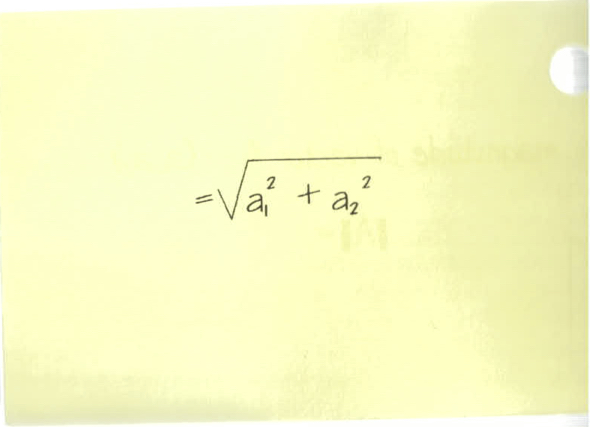 = √(a₁² + a₂²)